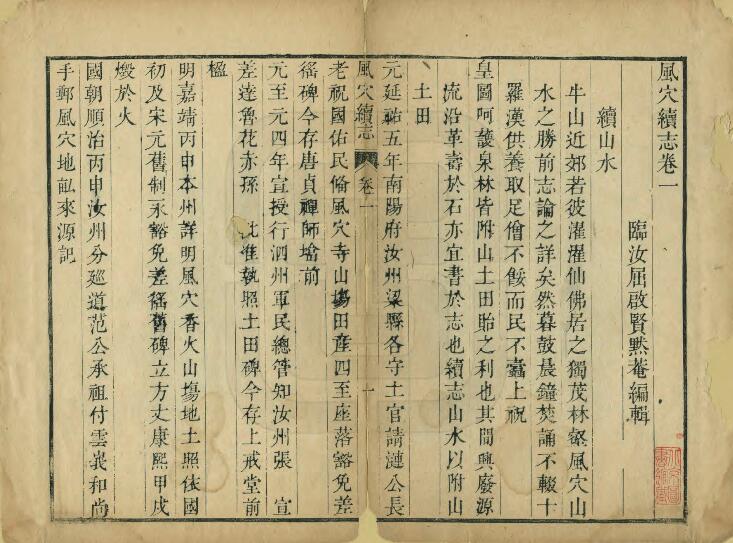 風穴續志卷一
臨汝屈啟賢黙菴編輯
續山水
牛山近郊若彼濯濯仙佛居之獨茂林壑風穴山
水之勝前志論之詳矣然暮鼓晨鐘焚誦不輟十
羅漢供養取足僧不餒而民不蠹上祝
皇圖呵護泉林皆附山土田貽之利也其間興廢源
流沿革壽於石亦宜書於志也續志山水以附山
土田
元延祐五年南陽府汝州梁縣各守土官請漣公長
風穴續志
卷一
一
老祝國佑民脩風穴寺山塲田產四至座落豁免差
徭碑今存唐貞禪師塔前
元至元四年宣授行泗州軍民總管知汝州張 宣
差達魯花赤孫 此准執照土田碑今存上戒堂前
楹
明嘉靖丙申本州詳明風穴香火山塲地土照依國
初及宋元舊制永豁免差徭舊碑立方丈康熙甲戌
燬於火
國朝順治丙申汝州分廵道范公承祖付雲峩和尚
手郵風穴地畝來源記